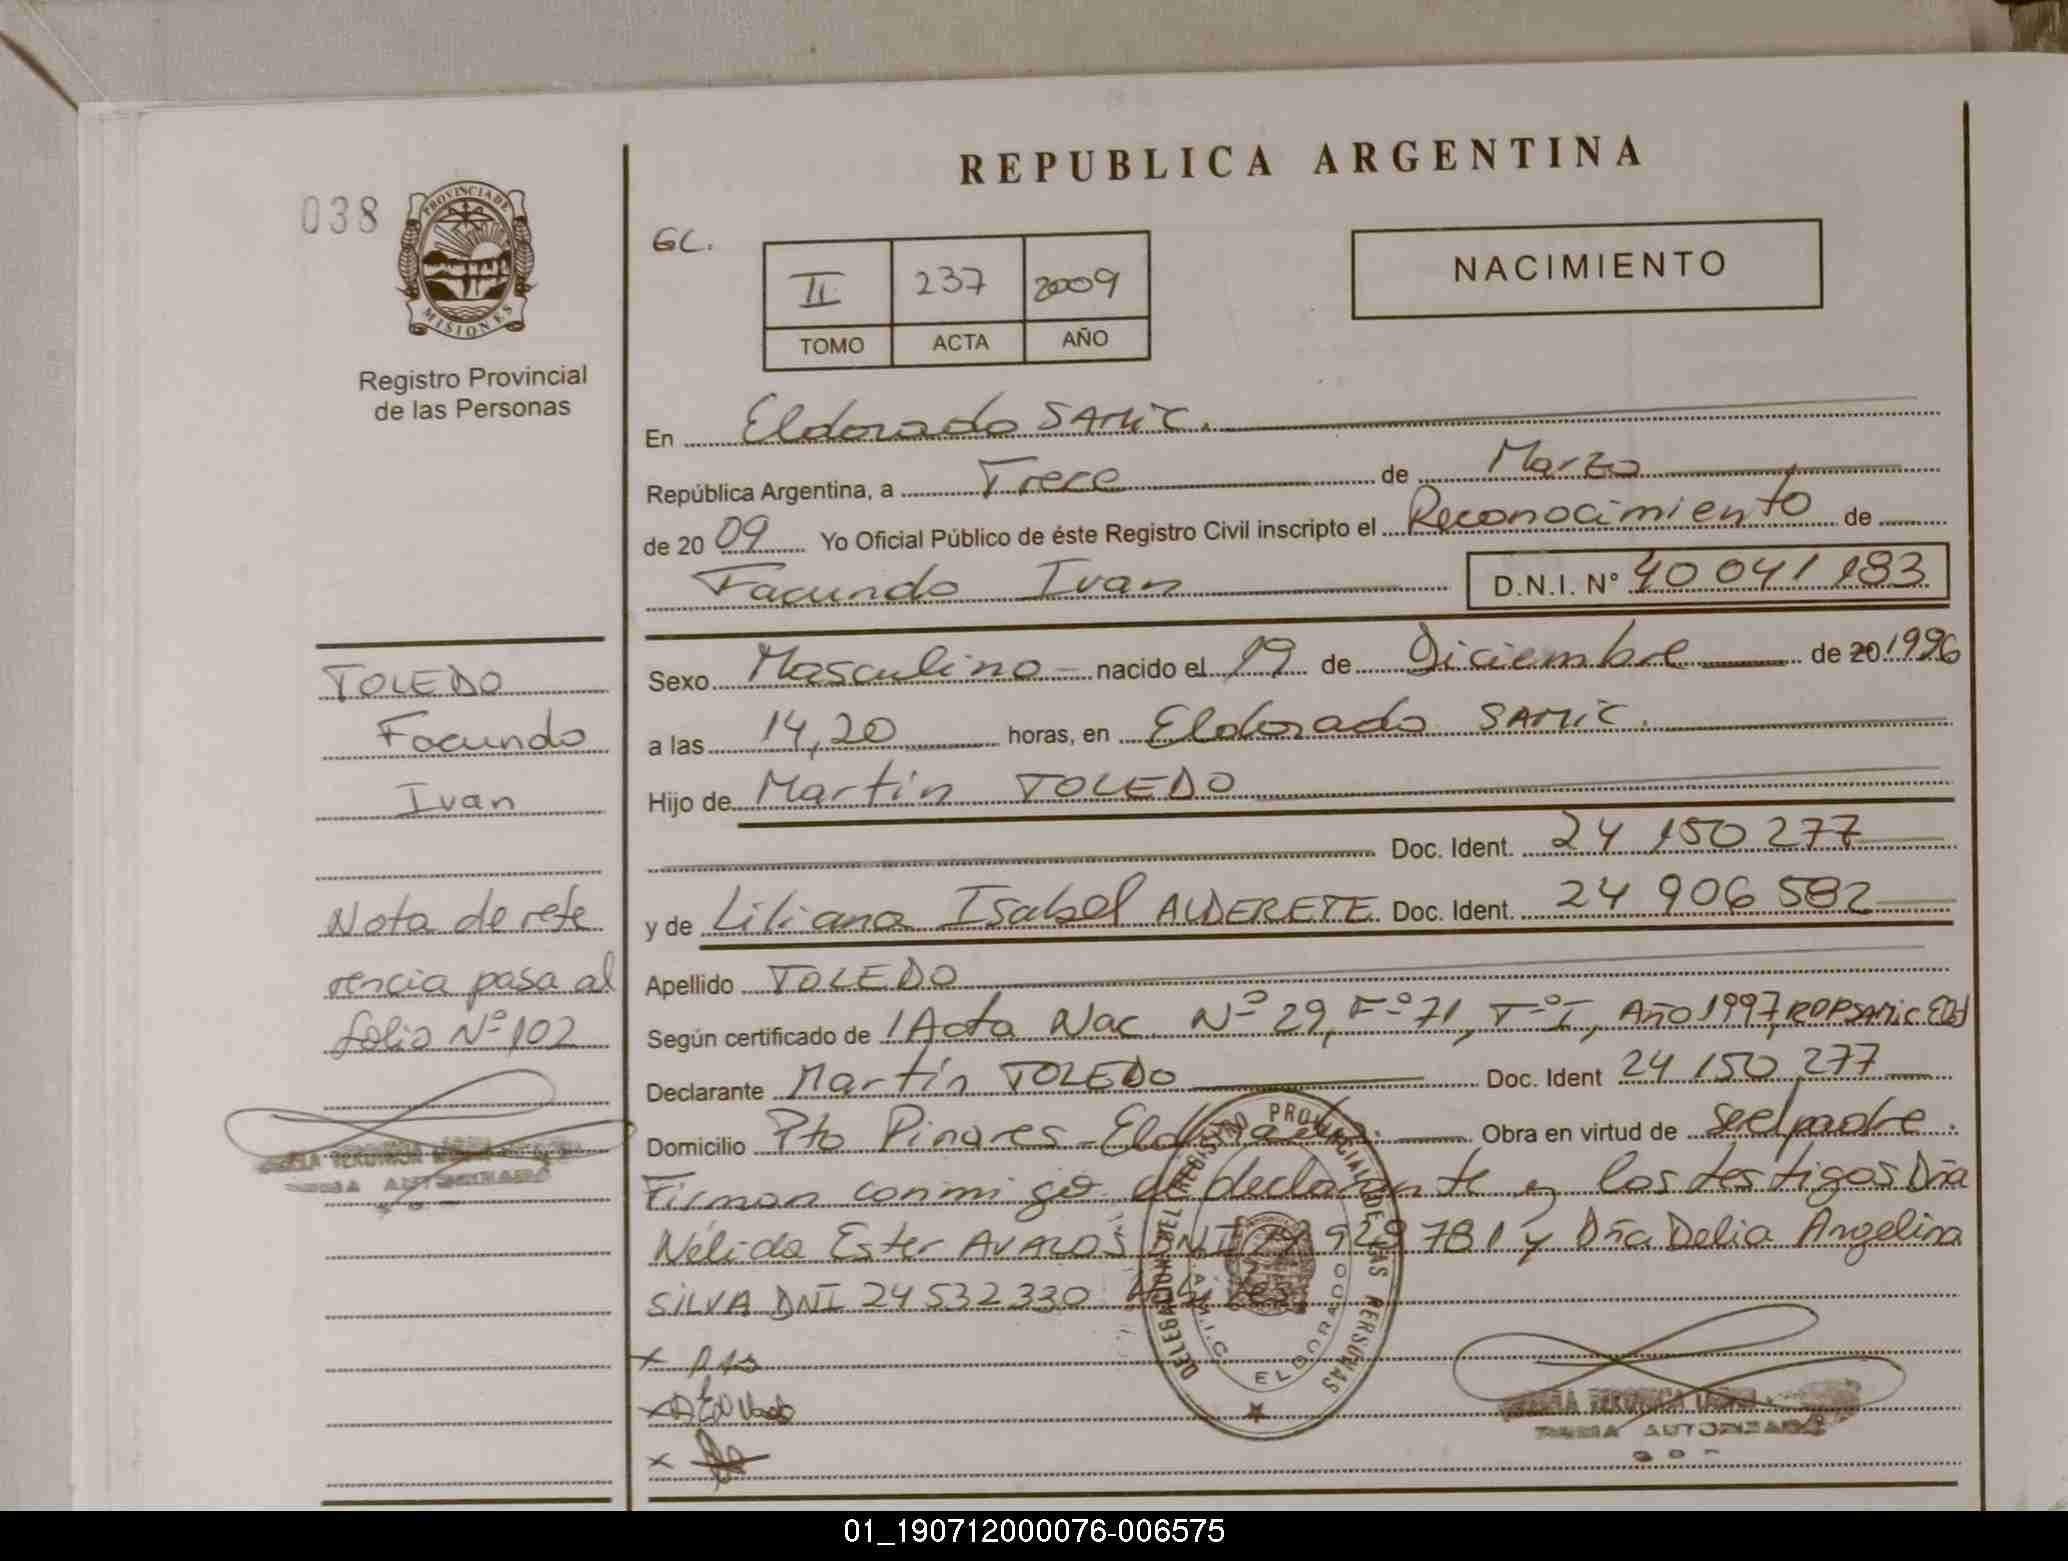 REPUBLICA ARGENTINA
038
PROVINCIA DE
MISIONES
Registro Provincial
de las Personas
GC.
II 237 2009
TOMO ACTA AÑO
NACIMIENTO
En Eldorado SAMIC.
República Argentina, a Trece de Marzo
de 2009 Yo Oficial Público de éste Registro Civil inscripto el Reconocimiento de
Facundo Ivan D.N.I. Nº 40 041 183
Sexo Masculino nacido el 19 de Diciembre de 20 1996
a las 14,20 horas, en Eldorado SAMIC.
Hijo de Martin TOLEDO
Doc. Ident. 24 150 277
y de Liliana Isabel ALDERETE Doc. Ident. 24 906 582
Apellido TOLEDO
Según certificado de 1 Acta Nac. Nº 29, Fº 71, Tº I, Año 1997, RDPSAMIC Eldo
Declarante Martín TOLEDO Doc. Ident 24 150 277
Domicilio Pto Pinares - Eldorado. Obra en virtud de ser el padre.
Firman conmigo el declarante y los testigos Dña
Nélida Ester AVALOS DNI 928 781 y Dña Delia Angelina
SILVA DNI 24 532 330
TOLEDO
Facundo
Ivan
Nota de refe
rencia pasa al
folio Nº 102
VERONICA
FIRMA AUTORIZADA
DELEGACION DEL REGISTRO PROVINCIAL DE LAS PERSONAS
S.A.M.I.C. ELDORADO
VERONICA
FIRMA AUTORIZADA
01_190712000076-006575